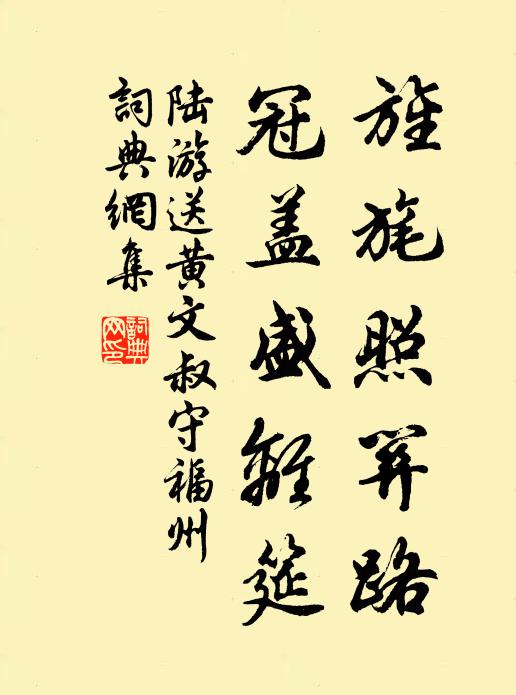 旌旄照關路
冠盖盛離筵
陆游送黄文叔守福州
詞典網集
詞典网印